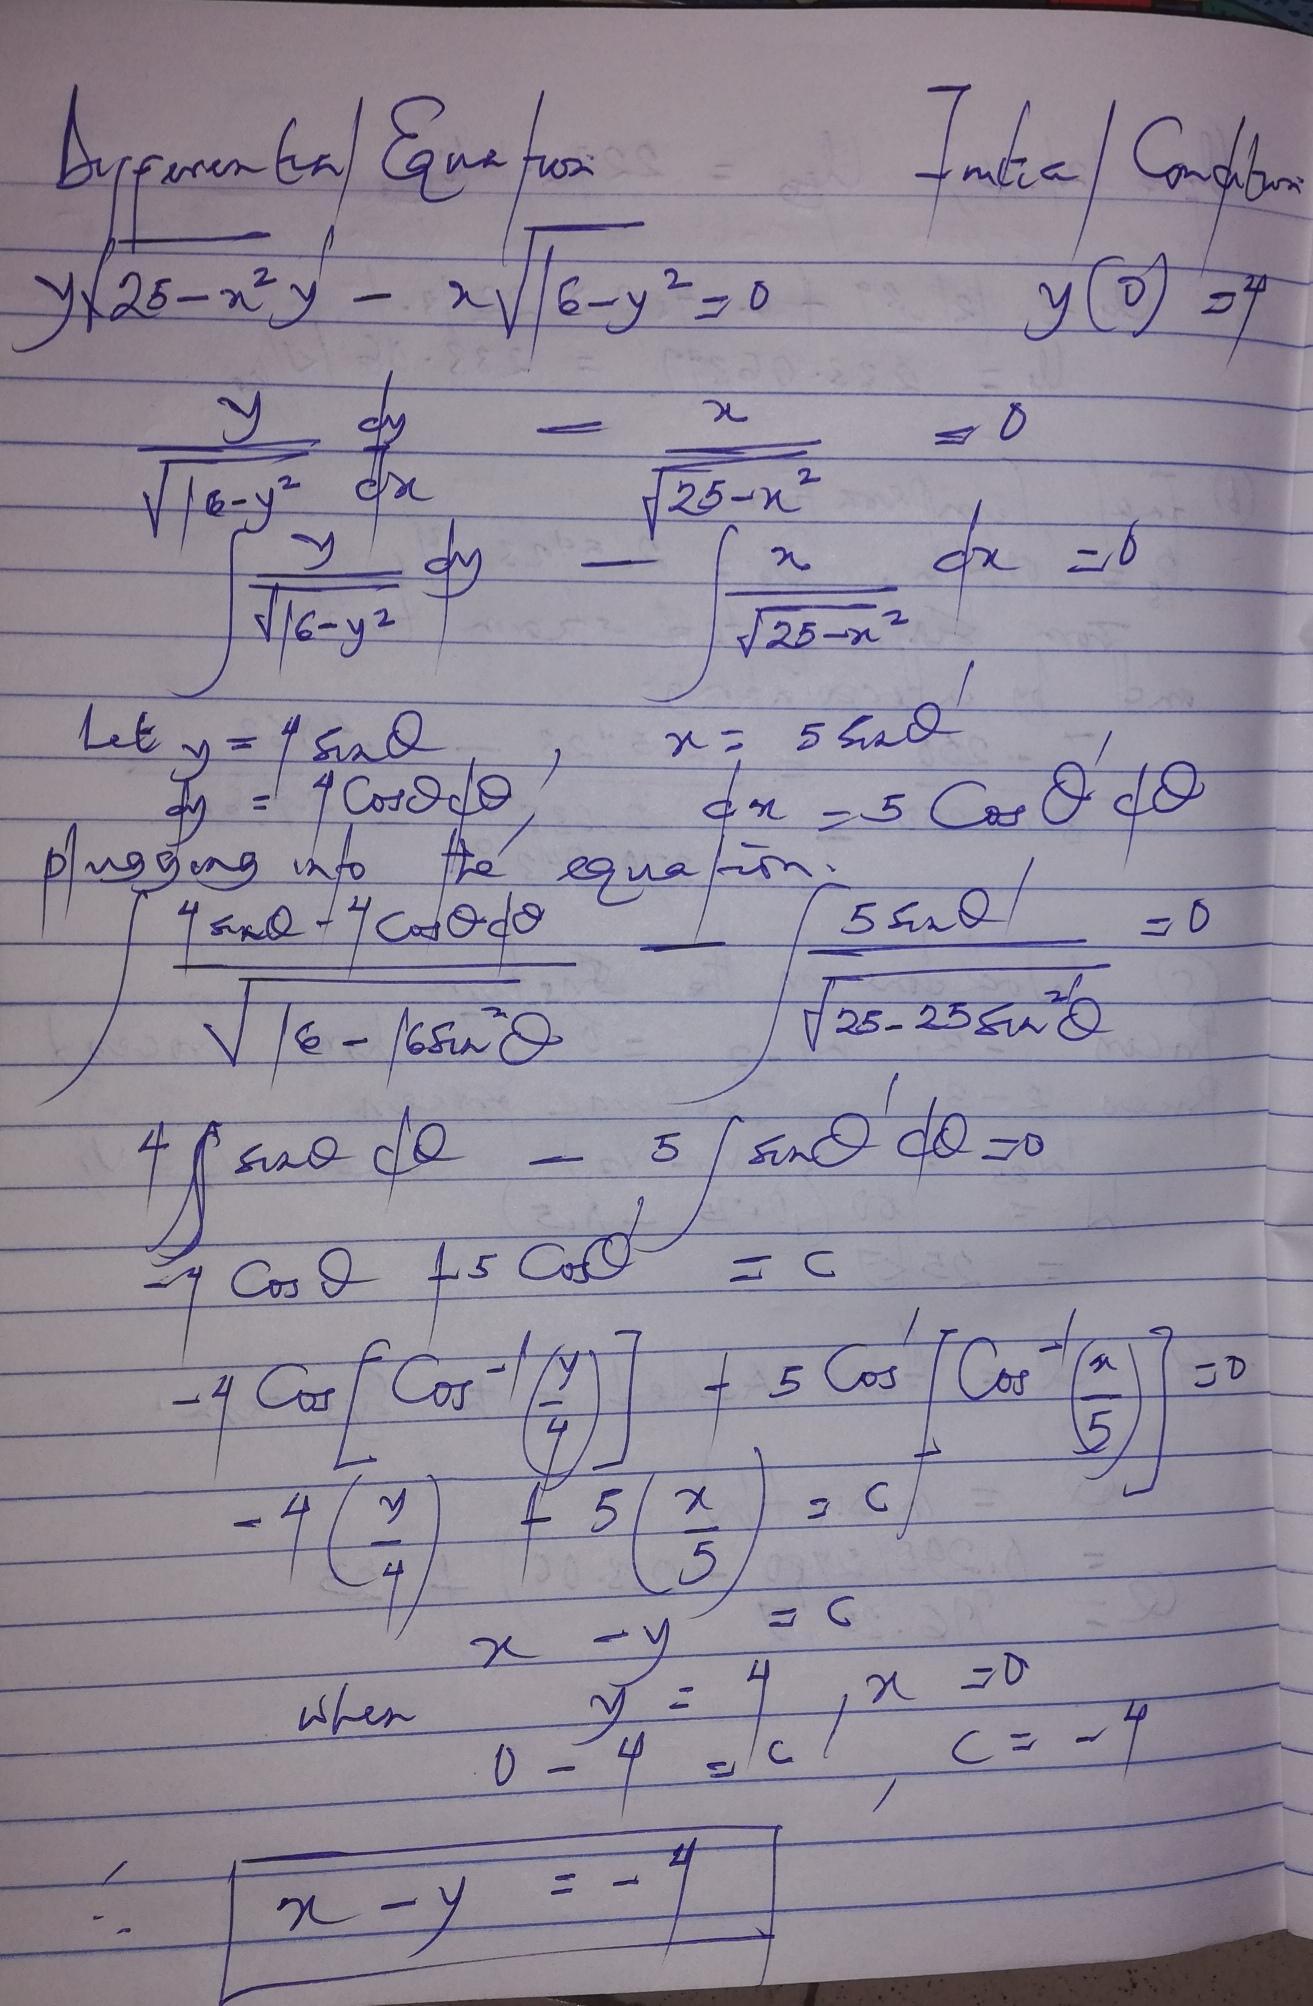 Differential Equation Initial Condition
y√25-x² y' - x√16-y² = 0 y(0) = 4
y/√16-y² dy/dx - x/√25-x² = 0
∫ y/√16-y² dy - ∫ x/√25-x² dx = 0
Let y = 4 sinθ, x = 5 sinθ'
dy = 4 cosθdθ, dx = 5 Cos θ' dθ
plugging into the equation.
∫ 4 sinθ - 4 Cosθdθ/√16 - 16sin²θ - ∫ 5 sinθ'/√25 - 25 sin²θ' = 0
4∫ sinθ dθ - 5 ∫ sinθ' dθ = 0
-4 Cos θ + 5 Cosθ' = c
-4 Cos [Cos⁻¹(y/4)] + 5 Cos' [Cos⁻¹(x/5)] = 0
-4(y/4) + 5(x/5) = c
x - y = c
when y = 4, x = 0
0 - 4 = c, c = -4
∴ x - y = -4